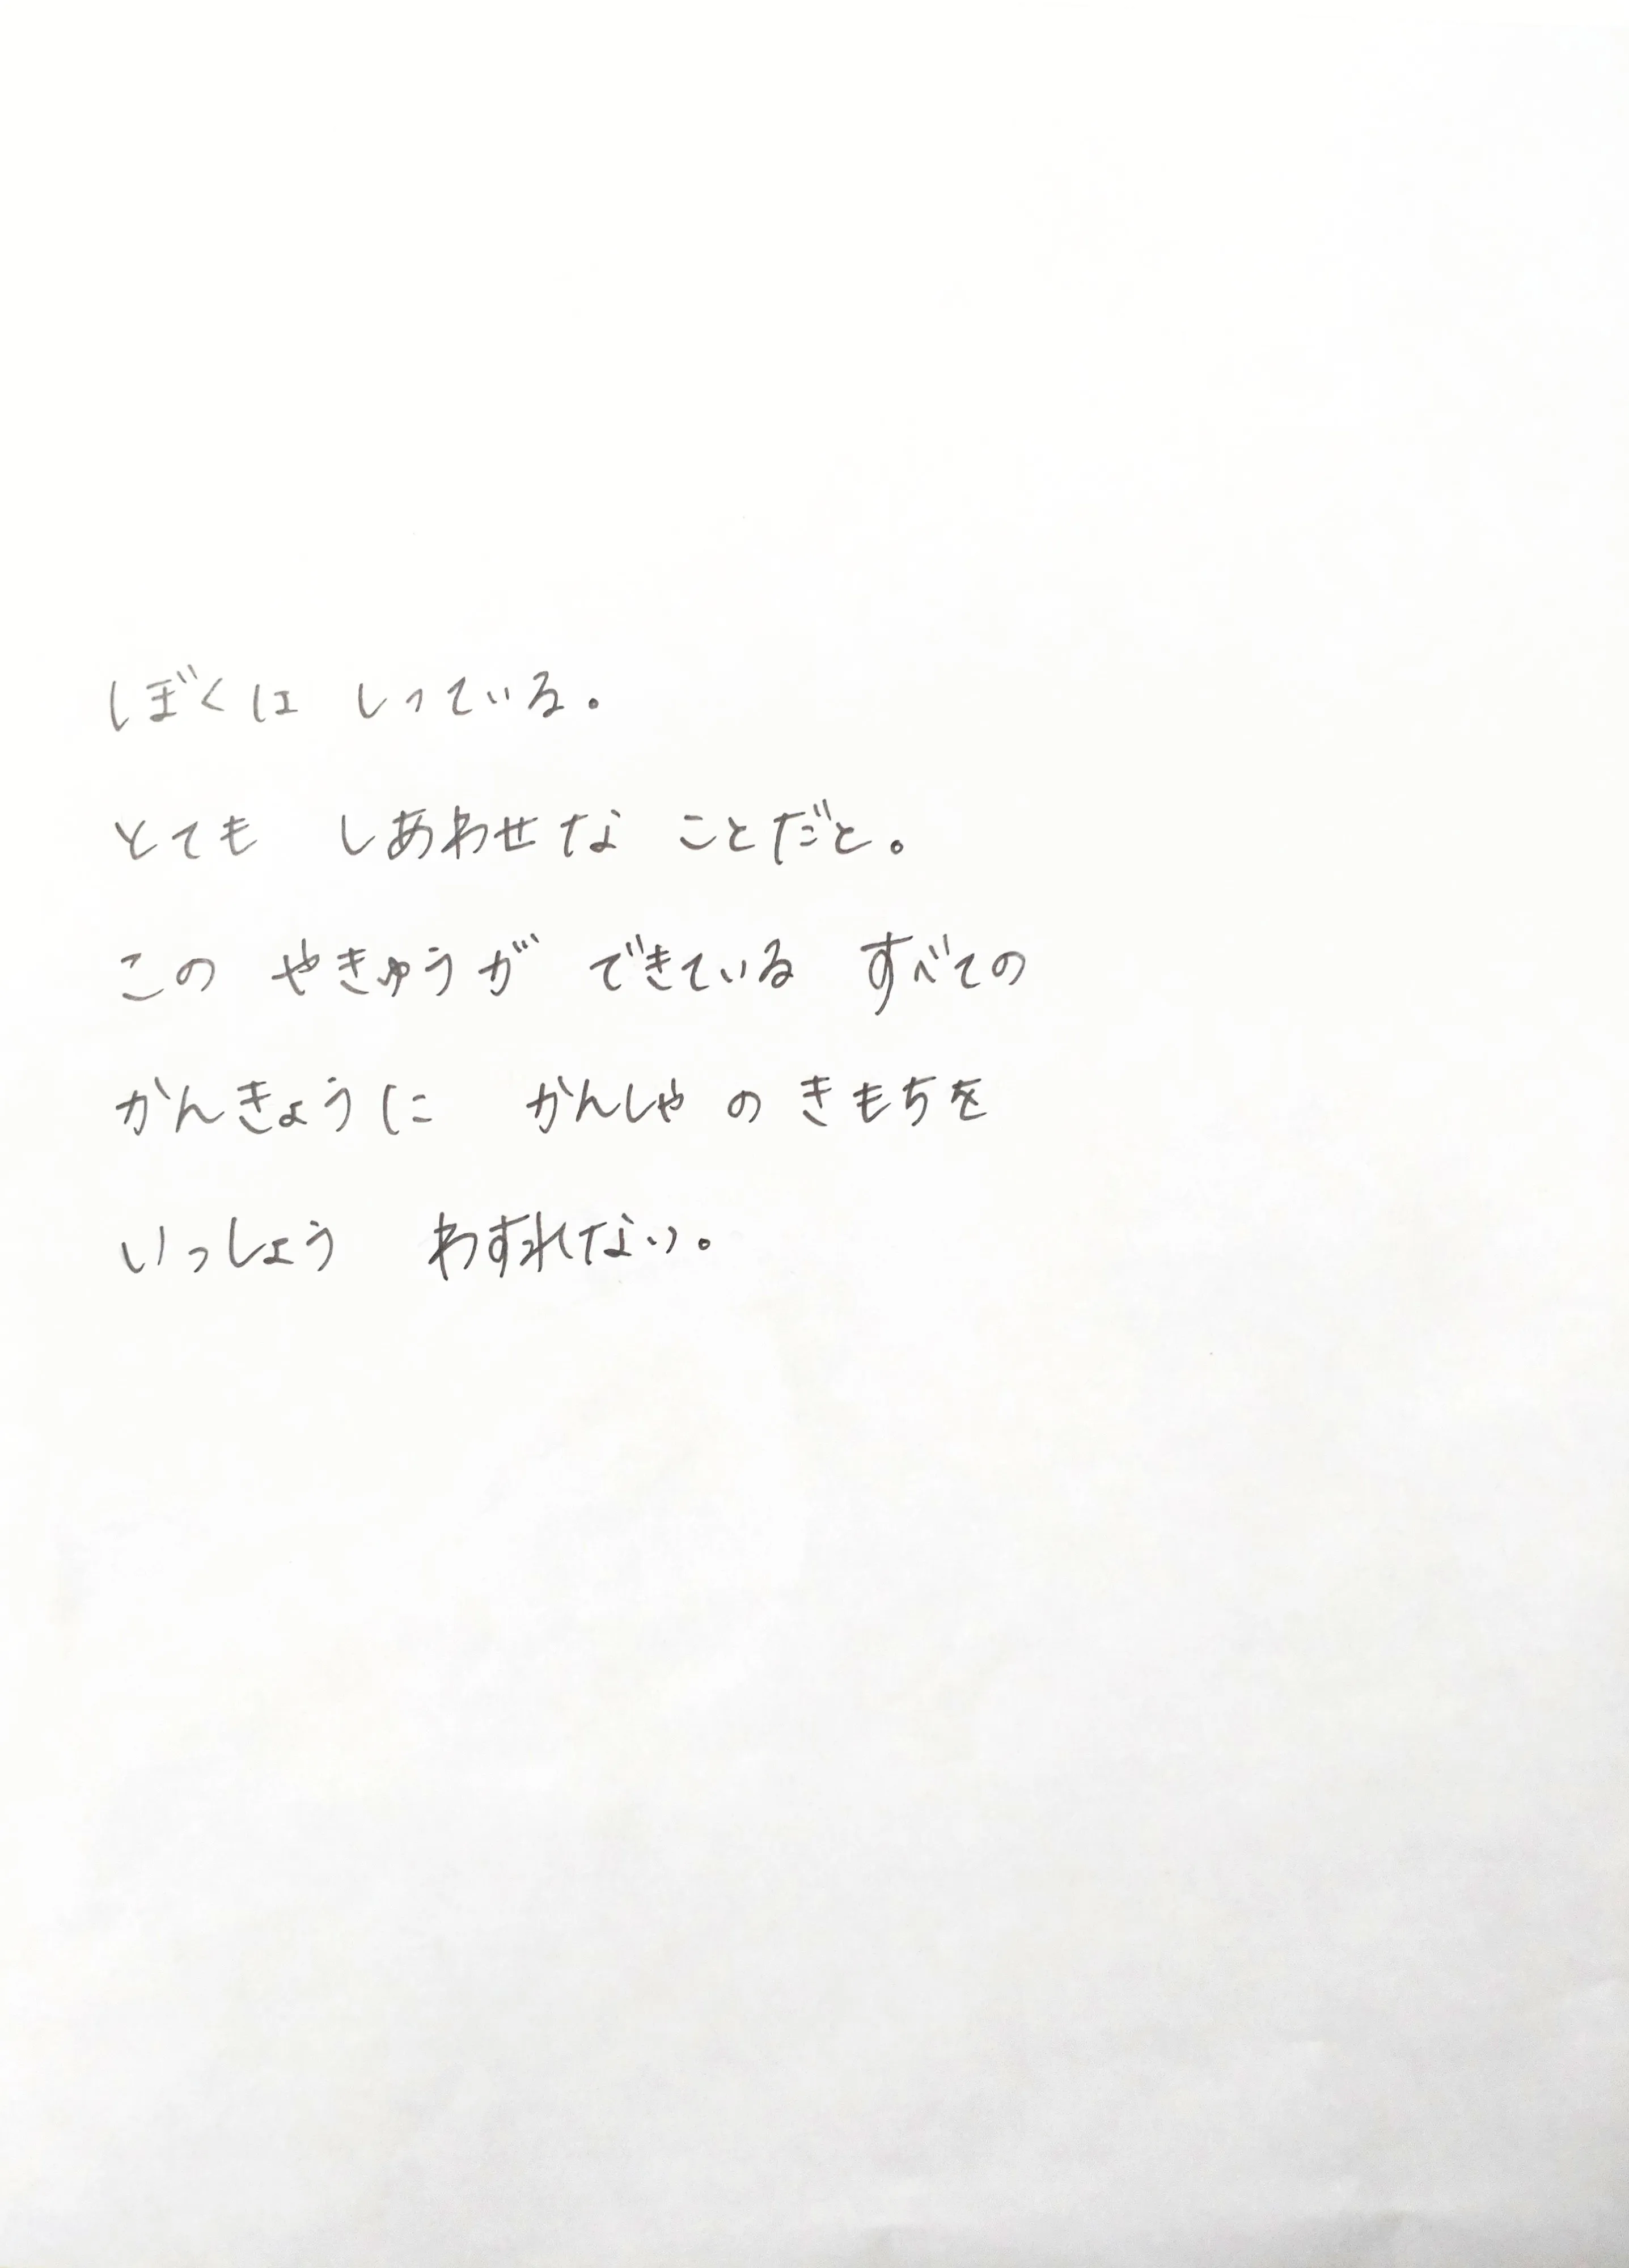 ぼくは しっている。
とても しあわせな ことだと。
この やきゅうが できている すべての
かんきょうに かんしゃ の きもちを
いっしょう わすれない。